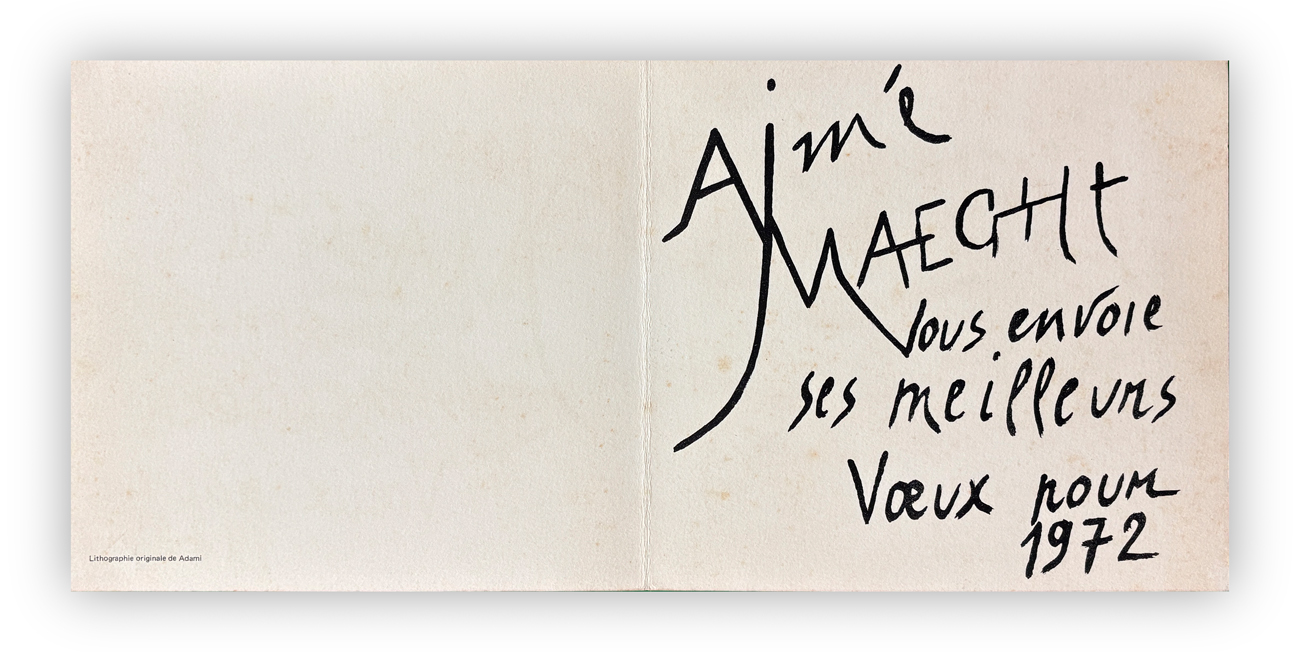 Lithographie originale de Adami
Aimé
MAEGHt
Vous envoie
ses meilleurs
Vœux pour
1972